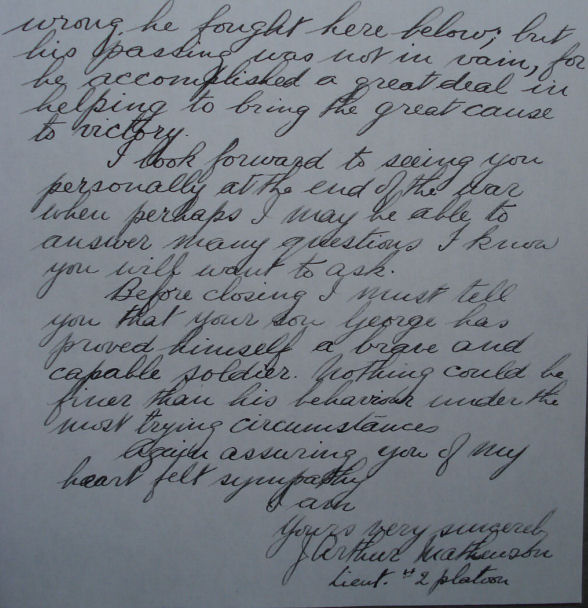 wrong he fought here below; but
his passing was not in vain, for
he accomplished a great deal in
helping to bring the great cause
to victory.
I look forward to seeing you
personally at the end of the war
when perhaps I may be able to
answer many questions I know
you will want to ask.
Before closing I must tell
you that your son George has
proved himself a brave and
capable soldier. Nothing could be
finer than his behaviour under the
most trying circumstances
Again assuring you of my
heart felt sympathy
I am
Yours very sincerely
J Arthur Mathewson
Lieut. #2 platoon